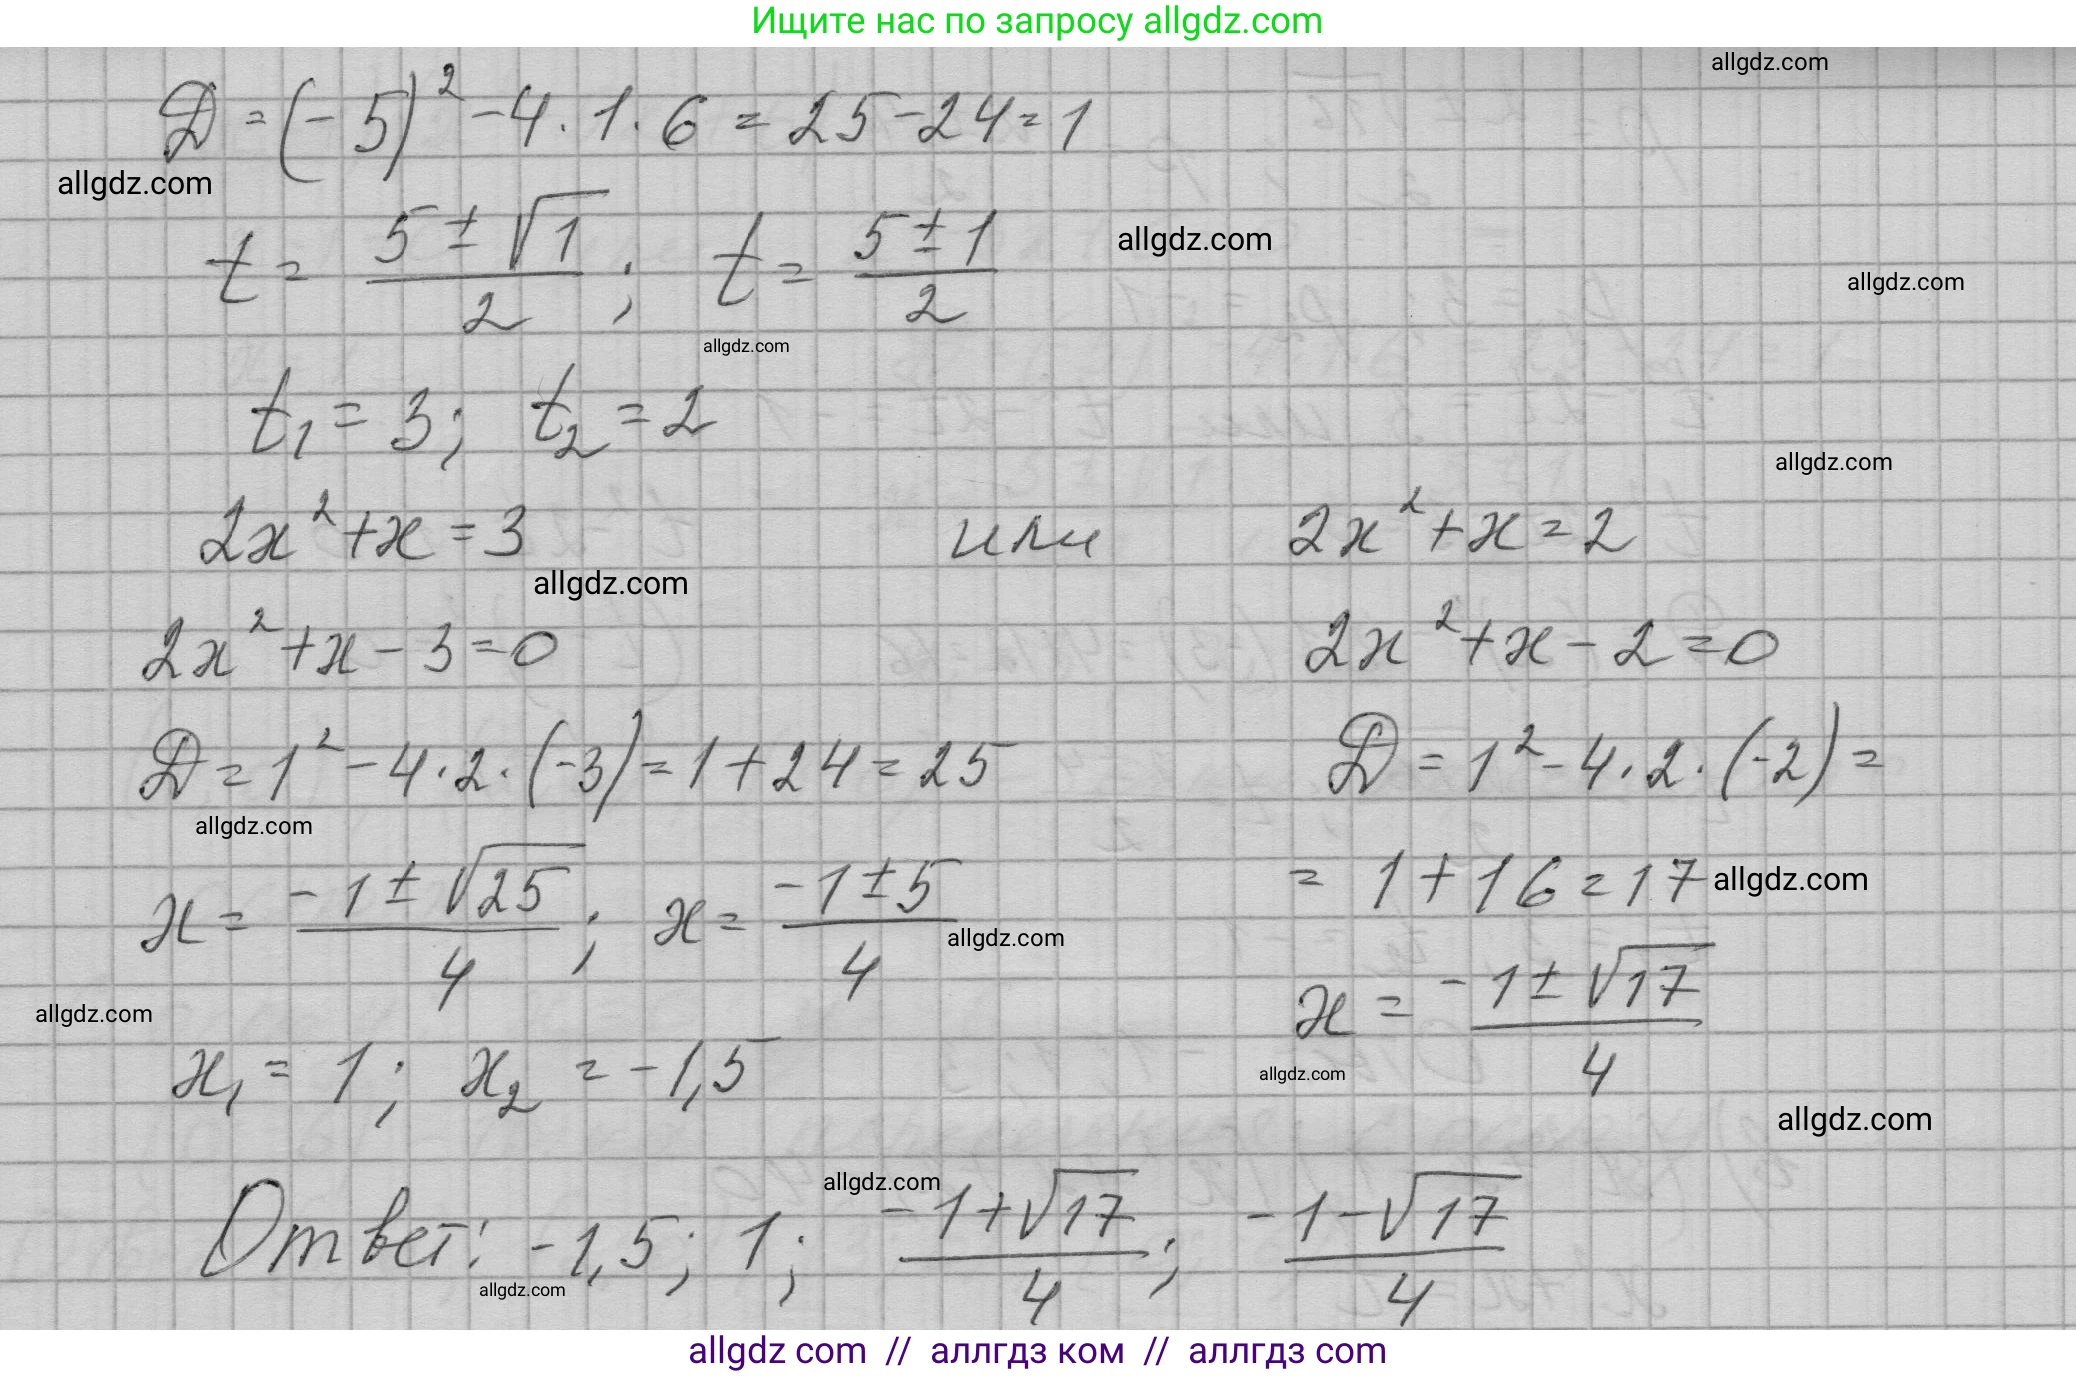 Ищите нас по запросу allgdz.com
allgdz.com
D = (-5)² - 4 · 1 · 6 = 25 - 24 = 1
allgdz.com
t = (5 ± √1)/2 ; t = (5 ± 1)/2
allgdz.com
allgdz.com
allgdz.com
t₁ = 3; t₂ = 2
allgdz.com
2x² + x = 3 или 2x² + x = 2
allgdz.com
2x² + x - 3 = 0 2x² + x - 2 = 0
D = 1² - 4 · 2 · (-3) = 1 + 24 = 25 D = 1² - 4 · 2 · (-2) =
allgdz.com
= 1 + 16 = 17
allgdz.com
x = (-1 ± √25)/4 ; x = (-1 ± 5)/4
allgdz.com
x = (-1 ± √17)/4
allgdz.com
x₁ = 1; x₂ = -1,5
allgdz.com
allgdz.com
allgdz.com
Ответ: -1,5; 1; (-1+√17)/4 ; (-1-√17)/4
allgdz.com
allgdz com // аллгдз ком // аллгдз com